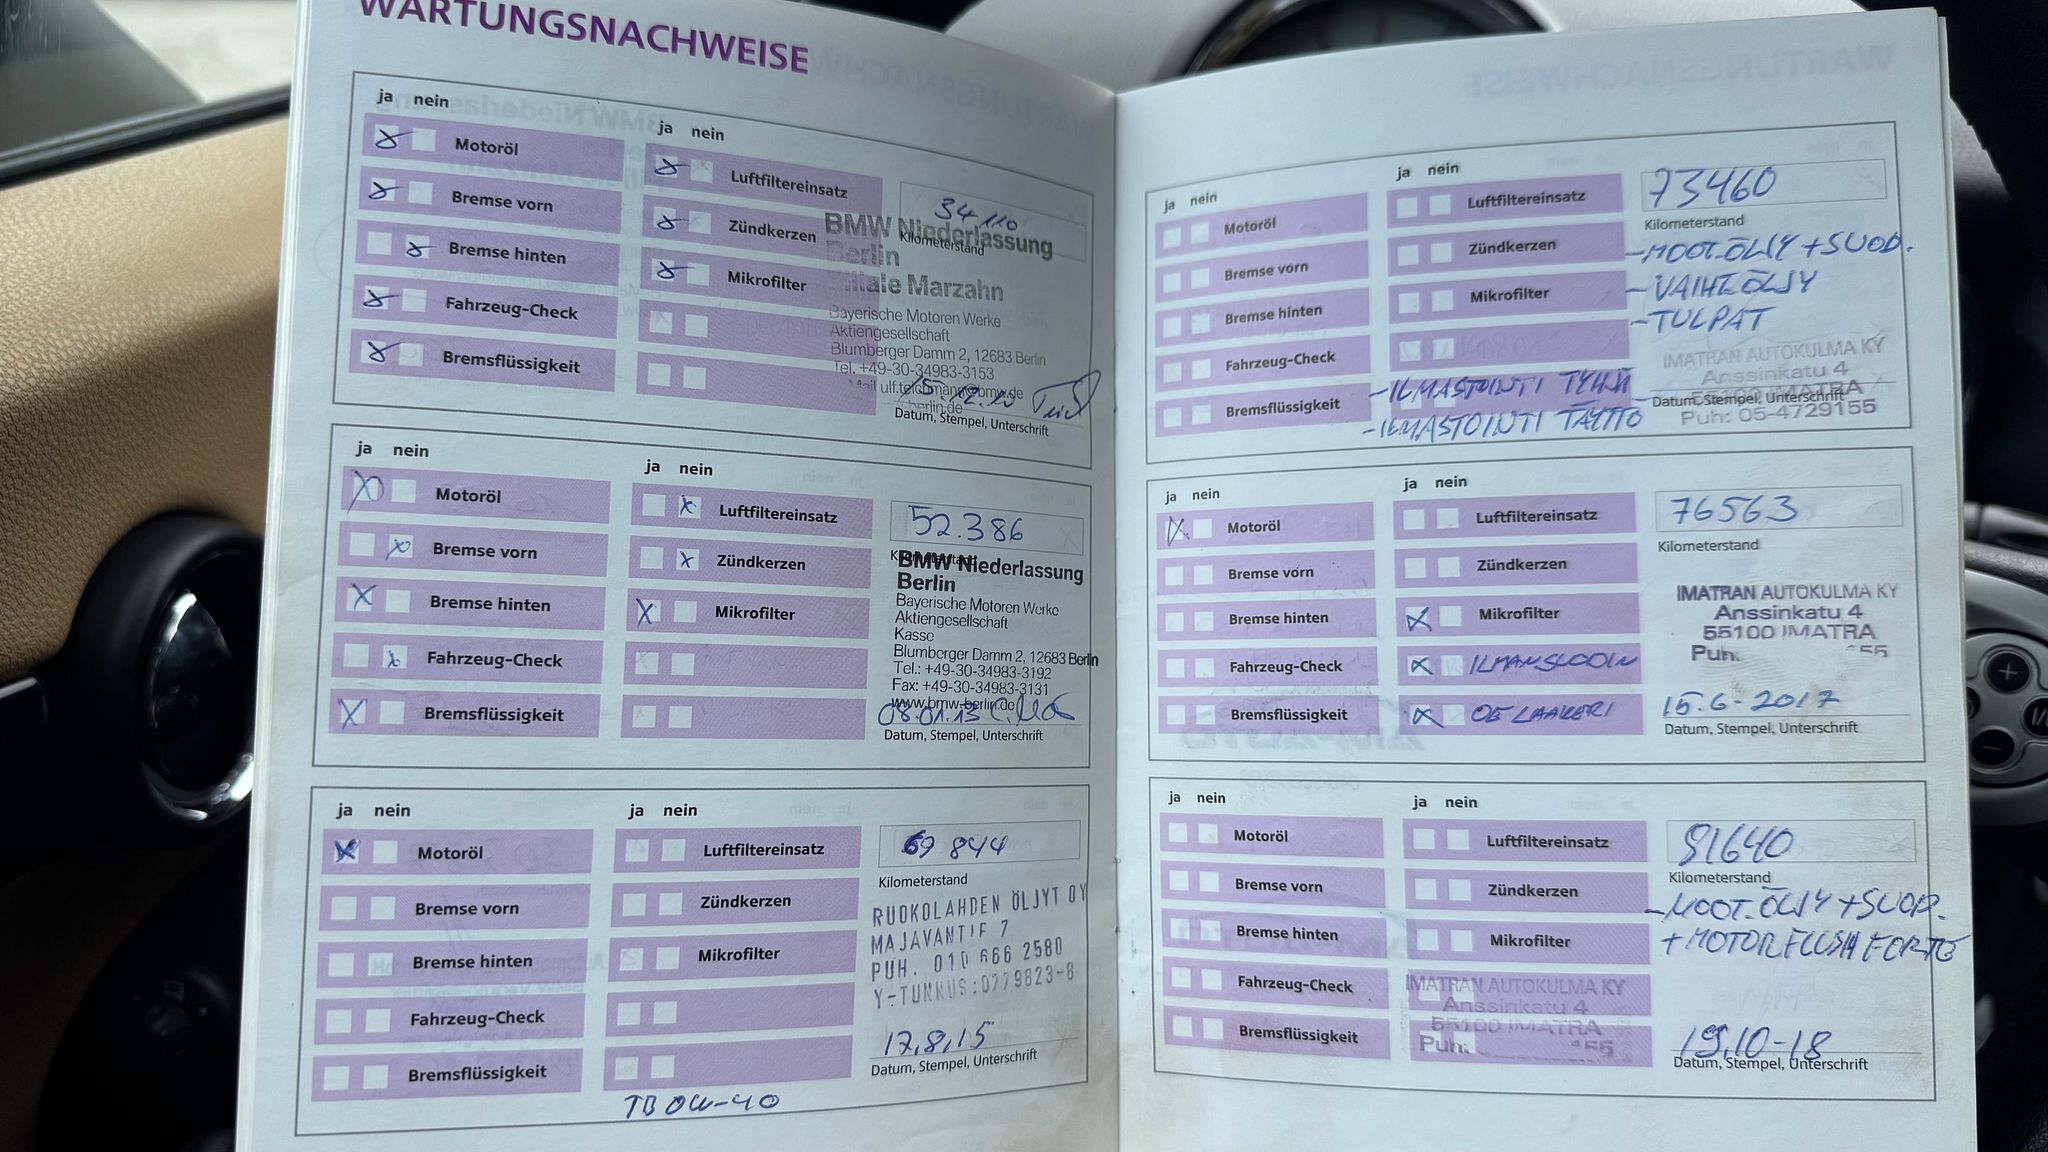 WARTUNGSNACHWEISE
ja nein
Motoröl
Bremse vorn
Bremse hinten
Fahrzeug-Check
Bremsflüssigkeit
ja nein
Luftfiltereinsatz
Zündkerzen
Mikrofilter
34110
Kilometerstand
BMW Niederlassung
Berlin
Filiale Marzahn
Bayerische Motoren Werke
Aktiengesellschaft
Blumberger Damm 2, 12683 Berlin
Tel. +49-30-34983-3153
15.12.10
Datum, Stempel, Unterschrift
ja nein
Motoröl
Bremse vorn
Bremse hinten
Fahrzeug-Check
Bremsflüssigkeit
ja nein
Luftfiltereinsatz
Zündkerzen
Mikrofilter
52.386
BMW Niederlassung
Berlin
Bayerische Motoren Werke
Aktiengesellschaft
Kasse
Blumberger Damm 2, 12683 Berlin
Tel.: +49-30-34983-3192
Fax: +49-30-34983-3131
www.bmw-berlin.de
08.01.13
Datum, Stempel, Unterschrift
ja nein
Motoröl
Bremse vorn
Bremse hinten
Fahrzeug-Check
Bremsflüssigkeit
ja nein
Luftfiltereinsatz
Zündkerzen
Mikrofilter
69 844
Kilometerstand
RUOKOLAHDEN ÖLJYT OY
MAJAVANTIE 7
PUH. 010 666 2580
Y-TUNNUS:0779823-8
17,8,15
Datum, Stempel, Unterschrift
TB 0W-40
ja nein
Motoröl
Bremse vorn
Bremse hinten
Fahrzeug-Check
Bremsflüssigkeit
ja nein
Luftfiltereinsatz
Zündkerzen
Mikrofilter
73460
Kilometerstand
-MOOT.ÖLJY+SUOD.
-VAIHT.ÖLJY
-TULPAT
-ILMASTOINTI TYHJ.
-ILMASTOINTI TÄYTTÖ
IMATRAN AUTOKULMA KY
Anssinkatu 4
IMATRA
Puh: 05-4729155
Datum, Stempel, Unterschrift
ja nein
Motoröl
Bremse vorn
Bremse hinten
Fahrzeug-Check
Bremsflüssigkeit
ja nein
Luftfiltereinsatz
Zündkerzen
Mikrofilter
ILMANSUODIN
OE LAAKERI
76563
Kilometerstand
IMATRAN AUTOKULMA KY
Anssinkatu 4
55100 IMATRA
Puh.
15.6-2017
Datum, Stempel, Unterschrift
ja nein
Motoröl
Bremse vorn
Bremse hinten
Fahrzeug-Check
Bremsflüssigkeit
ja nein
Luftfiltereinsatz
Zündkerzen
Mikrofilter
81640
Kilometerstand
-MOOT.ÖLJY+SUOD.
+MOTORFLUSH FORTE
IMATRAN AUTOKULMA KY
Anssinkatu 4
55100 IMATRA
Puh.
19.10-18
Datum, Stempel, Unterschrift